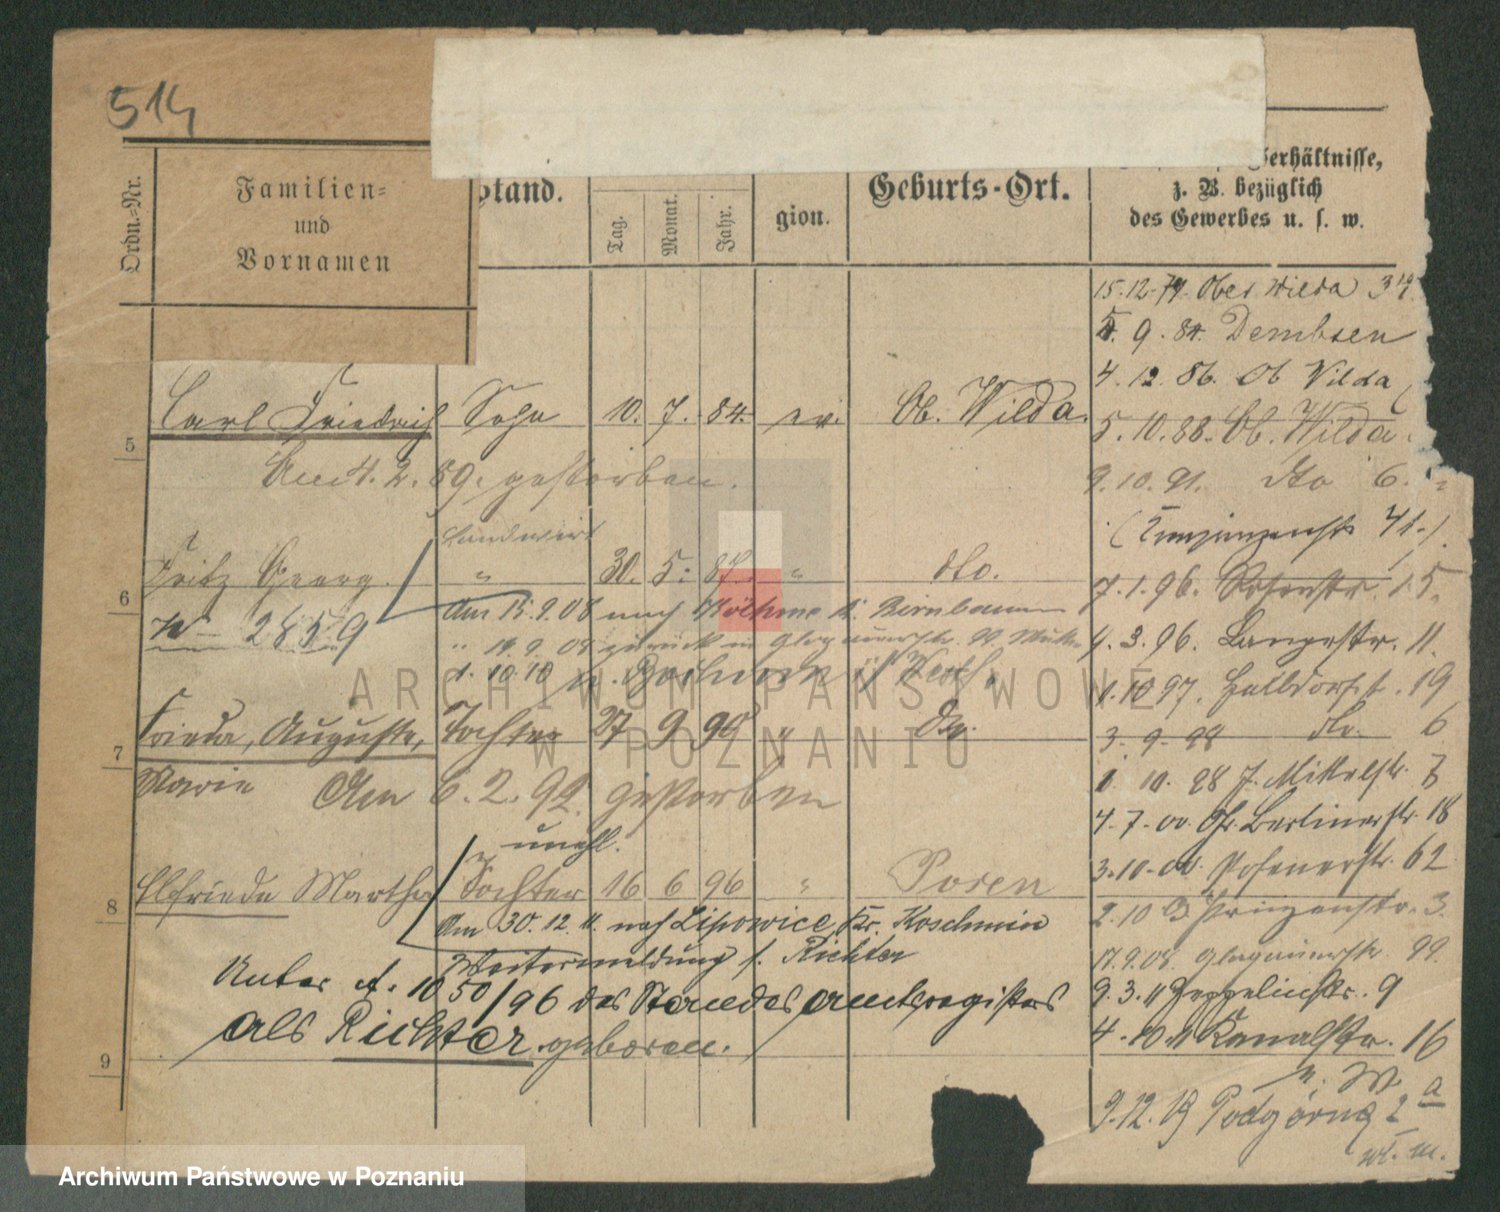 514
Ordn.-Nr.
Familien-
und
Vornamen
stand.
Tag.
Monat.
Jahr.
gion.
Geburts-Ort.
erhältnisse,
z. B. bezüglich
des Gewerbes u. s. w.
15.12.79. Ober Wilda 34
4. 9. 84. Dembsen
4. 12. 86. Ob Wilda
5 Carl Friedrich Sohn 10. 7. 84. ev. Ob. Wilda.
5. 10. 88. Ob. Wilda.
Am 4. 2. 89. gestorben.
9. 10. 91. dto 6.
Landwirt
(Kronprinzenstr. 41.)
6 Fritz Georg. " 30. 5. 87. " dto.
7. 1. 96. 15.
No 2859
Am 15.9.08 nach Birnbaum
4. 3. 96. Langestr. 11.
" 14.9.08 zurück
1. 10 10 n.
1. 10 97. Halbdorfst. 19
7 Frieda, Auguste, Tochter 27 9 " Do.
3. 9. 98 do. 6
Marie Am 6. 2. 92 gestorben
1. 10. 98 Mittelstr. 7
unehl.
4. 7. 00. Gr. Berlinerstr. 18
8 Elfriede Martha Tochter 16 6 96 " Posen
3. 10. 00. Posenerstr. 62
Am 30. 12. 11. nach Lipowice, Kr. Koschmin
2. 10 03 Prinzenstr. 3.
Weitermeldung s. Richter
17.9.08. Glogauerstr. 99.
Unter A. 1050/96 des Standesamtsregisters
9. 3. 11 Zeppelinstr. 9
als Richter geboren.
4. 10. 11 Kanalstr. 16
9
n. W.
9.12.19 Podgórna 2 a
w. m.
ARCHIWUM PAŃSTWOWE
W POZNANIU
Archiwum Państwowe w Poznaniu